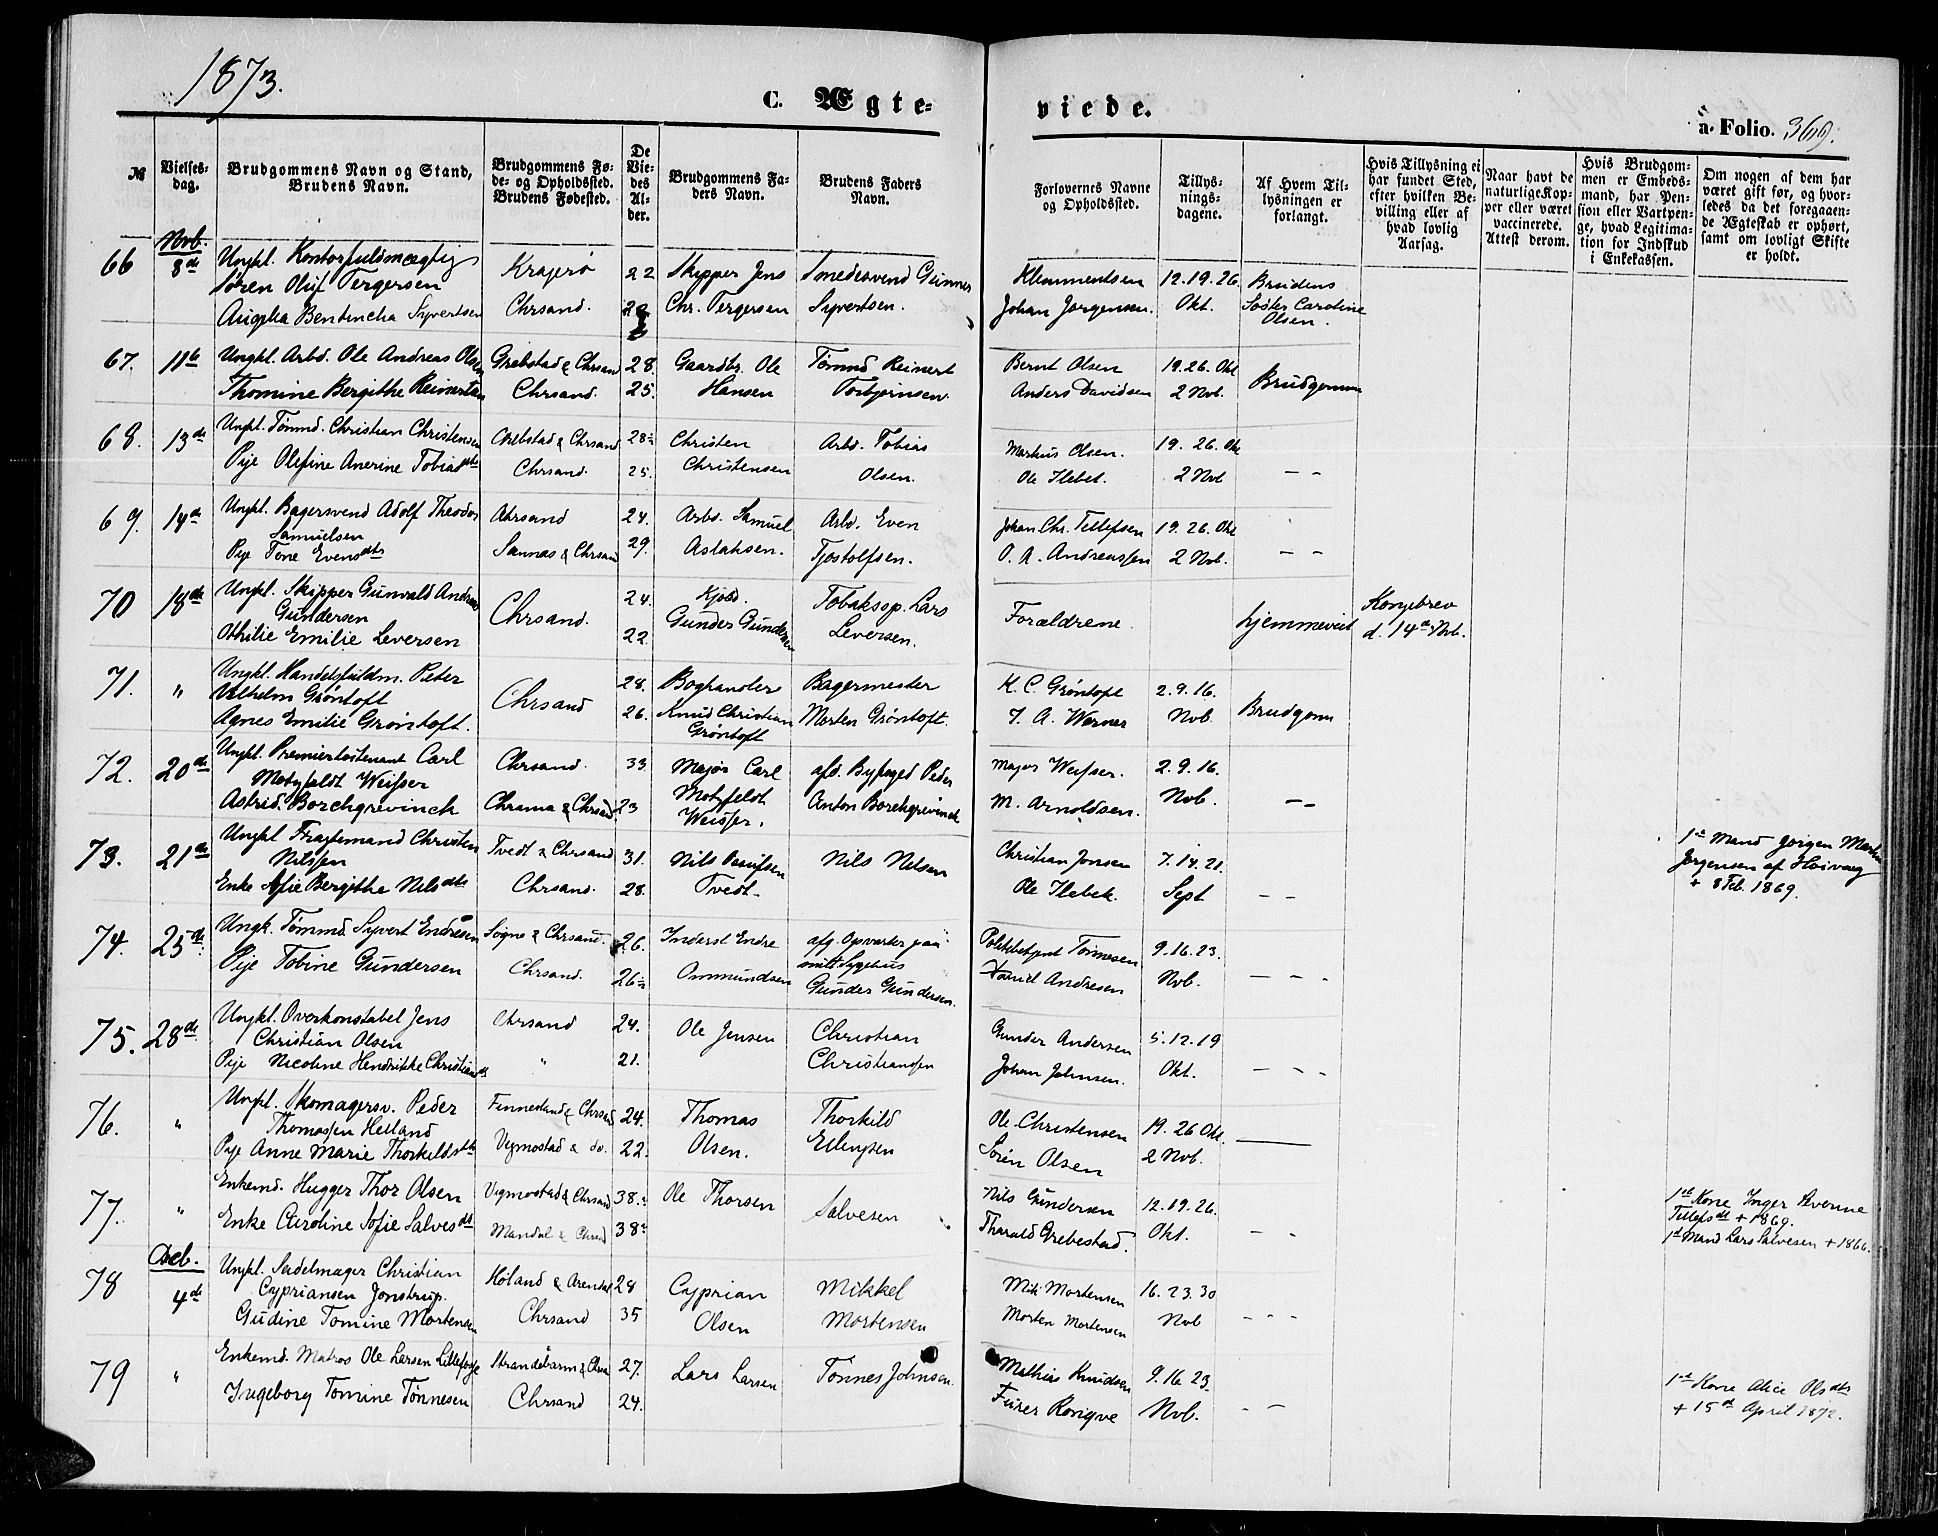 1873.
C. Ægte-
viede.
a. Folio. 369.
№
Vielses-
dag.
Brudgommens Navn og Stand,
Brudens Navn.
Brudgommens Fø-
de- og Opholdssted.
Brudens Fødested.
De
Vie-
des
Al-
der.
Brudgommens Fa-
ders Navn.
Brudens Faders
Navn.
Forlovernes Navne
og Opholdssted.
Tillys-
nings-
dagene.
Af Hvem Til-
lysningen er
forlangt.
Hvis Tillysning ei
har fundet Sted,
efter hvilken Be-
villing eller af
hvad lovlig
Aarsag.
Naar havt de
naturlige Kop-
per eller været
vaccinerede.
Attest derom.
Hvis Brudgom-
men er Embeds-
mand, har Pen-
sion eller Vartpen-
ge, hvad Legitima-
tion for Indskud
i Enkekassen.
Om nogen af dem har
været gift før, og hvor-
ledes da det foregaaen-
de Ægteskab er ophørt,
samt om lovligt Skifte
er holdt.
Nvb.
66 8de Ungkl. Kontorfuldmægtig Kragerø 22 Skipper Jens Smedesvend Gunner Klemmentsen 12. 19. 26. Brudens
Søren Oluf Tergersen
Chrsand. Chr. Tergersen Syvertsen. Johan Jørgensen. Okt. Søster Caroline
Bentincha Syvertsen
Olsen.
67. 11te Ungkl. Arbd. Ole Andreas Olsen Grebstad & Chrsand 28. Gaardbr. Ole Tømmd Reinert Bernt Olsen 19. 26. Okt
Thomine Bergithe Reinertsen Chrsand. 25. Hansen Torbjørnsen. Anders Davidsen 2 Nvb. Brudgommen
68. 13de Ungkl. Tømmd. Christian Christensen Grebstad & Chrsand 28 Christen Arbd. Tobias Markus Olsen. 19. 26. Okt
Pige Olefine Anerine Tobiasdtr Chrsand. 25. Christensen Olsen. Ole Ilebek. 2 Nvb — —
69. 14de Ungkl. Bagersvend Adolf Theodor Chrsand 24. Arbd. Samuel Arbd. Even Johan Chr. Tellefsen 19. 26. Okt
Samuelsen
Pige Tone Evensdtr & Chrsand 29. Aslaksen. Tjostolfsen. O. A. Andreassen 2 Nvb. — —
70 18de Ungkl. Skipper Gunvald Andreas 24. Kjøbd. Tobakssp. Lars Kongebrev
Gundersen Chrsand. Gunder Gundersen Forældrene. hjemmeviet d. 14de Nvb.
Othilie Emilie Leversen 22. Leversen.
71. " Ungkl. Handelsfuldm. Peter 28. Boghandler Bagermester K. C. Grøntoft 2. 9. 16.
Vilhelm Grøntoft Chrsand
Agnes Emilie Grøntoft. 26. Knud Christian Morten Grøntoft. J. A. Werner Nvb. Brudgom
Grøntoft
72. 20de Ungkl. Premierløitenant Carl Chrsand. 33 Major Carl afd. Byfoged Peder Major Weisser. 2. 9. 16.
Motzfeldt Weisser
Astrid Borchgrevinck Chrania & Chrsand. 23 Motzfeldt Anton Borchgrevinck M. Arnoldsen. Nvb. — —
Weisser.
73. 21de Ungkl Fragtemand Christen Tvedt & Chrsand 31. Nils Nils Nilsen Christian Jonsen 7. 14. 21. 1ste Mand Jørgen Martin
Nilssen Jørgensen af Høivaag
Enke Bergithe Nilsdtr Chrsand. 28. Tvedt. Ole Ilebek. Sept — — + 8 Feb. 1869.
74. 25de Ungk. Tømmd. Syvert Endresen Søgne & Chrsand. 26. Inderst Endre afg. Opvarter paa Politibetjent Tønnesen 9. 16. 23.
Pige Tobine Gundersen Chrsand. 26 Ommundsen Sygehus Daniel Andresen Nvb. — — —
Gunder Gundersen.
75. 28de Ungkl. Overkonstabel Jens Chrsand 24. Ole Jensen Christian Gunder Andersen 5. 12. 19
Christian Olsen
Pige Nicoline Hendrikke Christiansdtr " 21. Christiansen Johan Johnsen. Okt. — — —
76. " Ungkl. Skomagersv. Peder Finnesland & Chrsand 24. Thomas Thorkild Ole Christensen 19. 26 Okt.
Thomassen Heiland
Pige Anne Marie Thorkildsdtr Vegmostad & do. 22. Olsen. Ellingsen Søren Olsen 2 Nvb. —
77. " Enkemd. Hugger Thor Olsen Vegmostad & Chrsand 38. Ole Thorsen Nils Gundersen 12. 19. 26. 1ste Kone Inger
Tellefsdtr + 1869.
Enke Caroline Sofie Salvesdtr Mandal & Chrsand 38 Salvesen Tharald Grebestad. Okt. — — 1ste Mand Lars Salvesen + 1866.
Deb.
78 4de Ungkl. Sadelmager Christian Høland & Arendal 28 Cyprian Mikkel Mik. Mortensen 16. 23. 30
Cypriansen Jonstrup.
Gudine Tomine Mortensen Chrsand 35 Olsen Mortensen Morten Mortensen Nvb — — —
79 " Enkemd. Matros Ole Larsen Strandebarm & Chrsa 27. Lars Larsen Tønnes Johnsen. Mathias Knudsen 9. 16 23. 1ste Kone Alice Olsdtr
Ingeborg Tomine Tønnesen Chrsand 24. Nvb. — — + 15de April 1872.